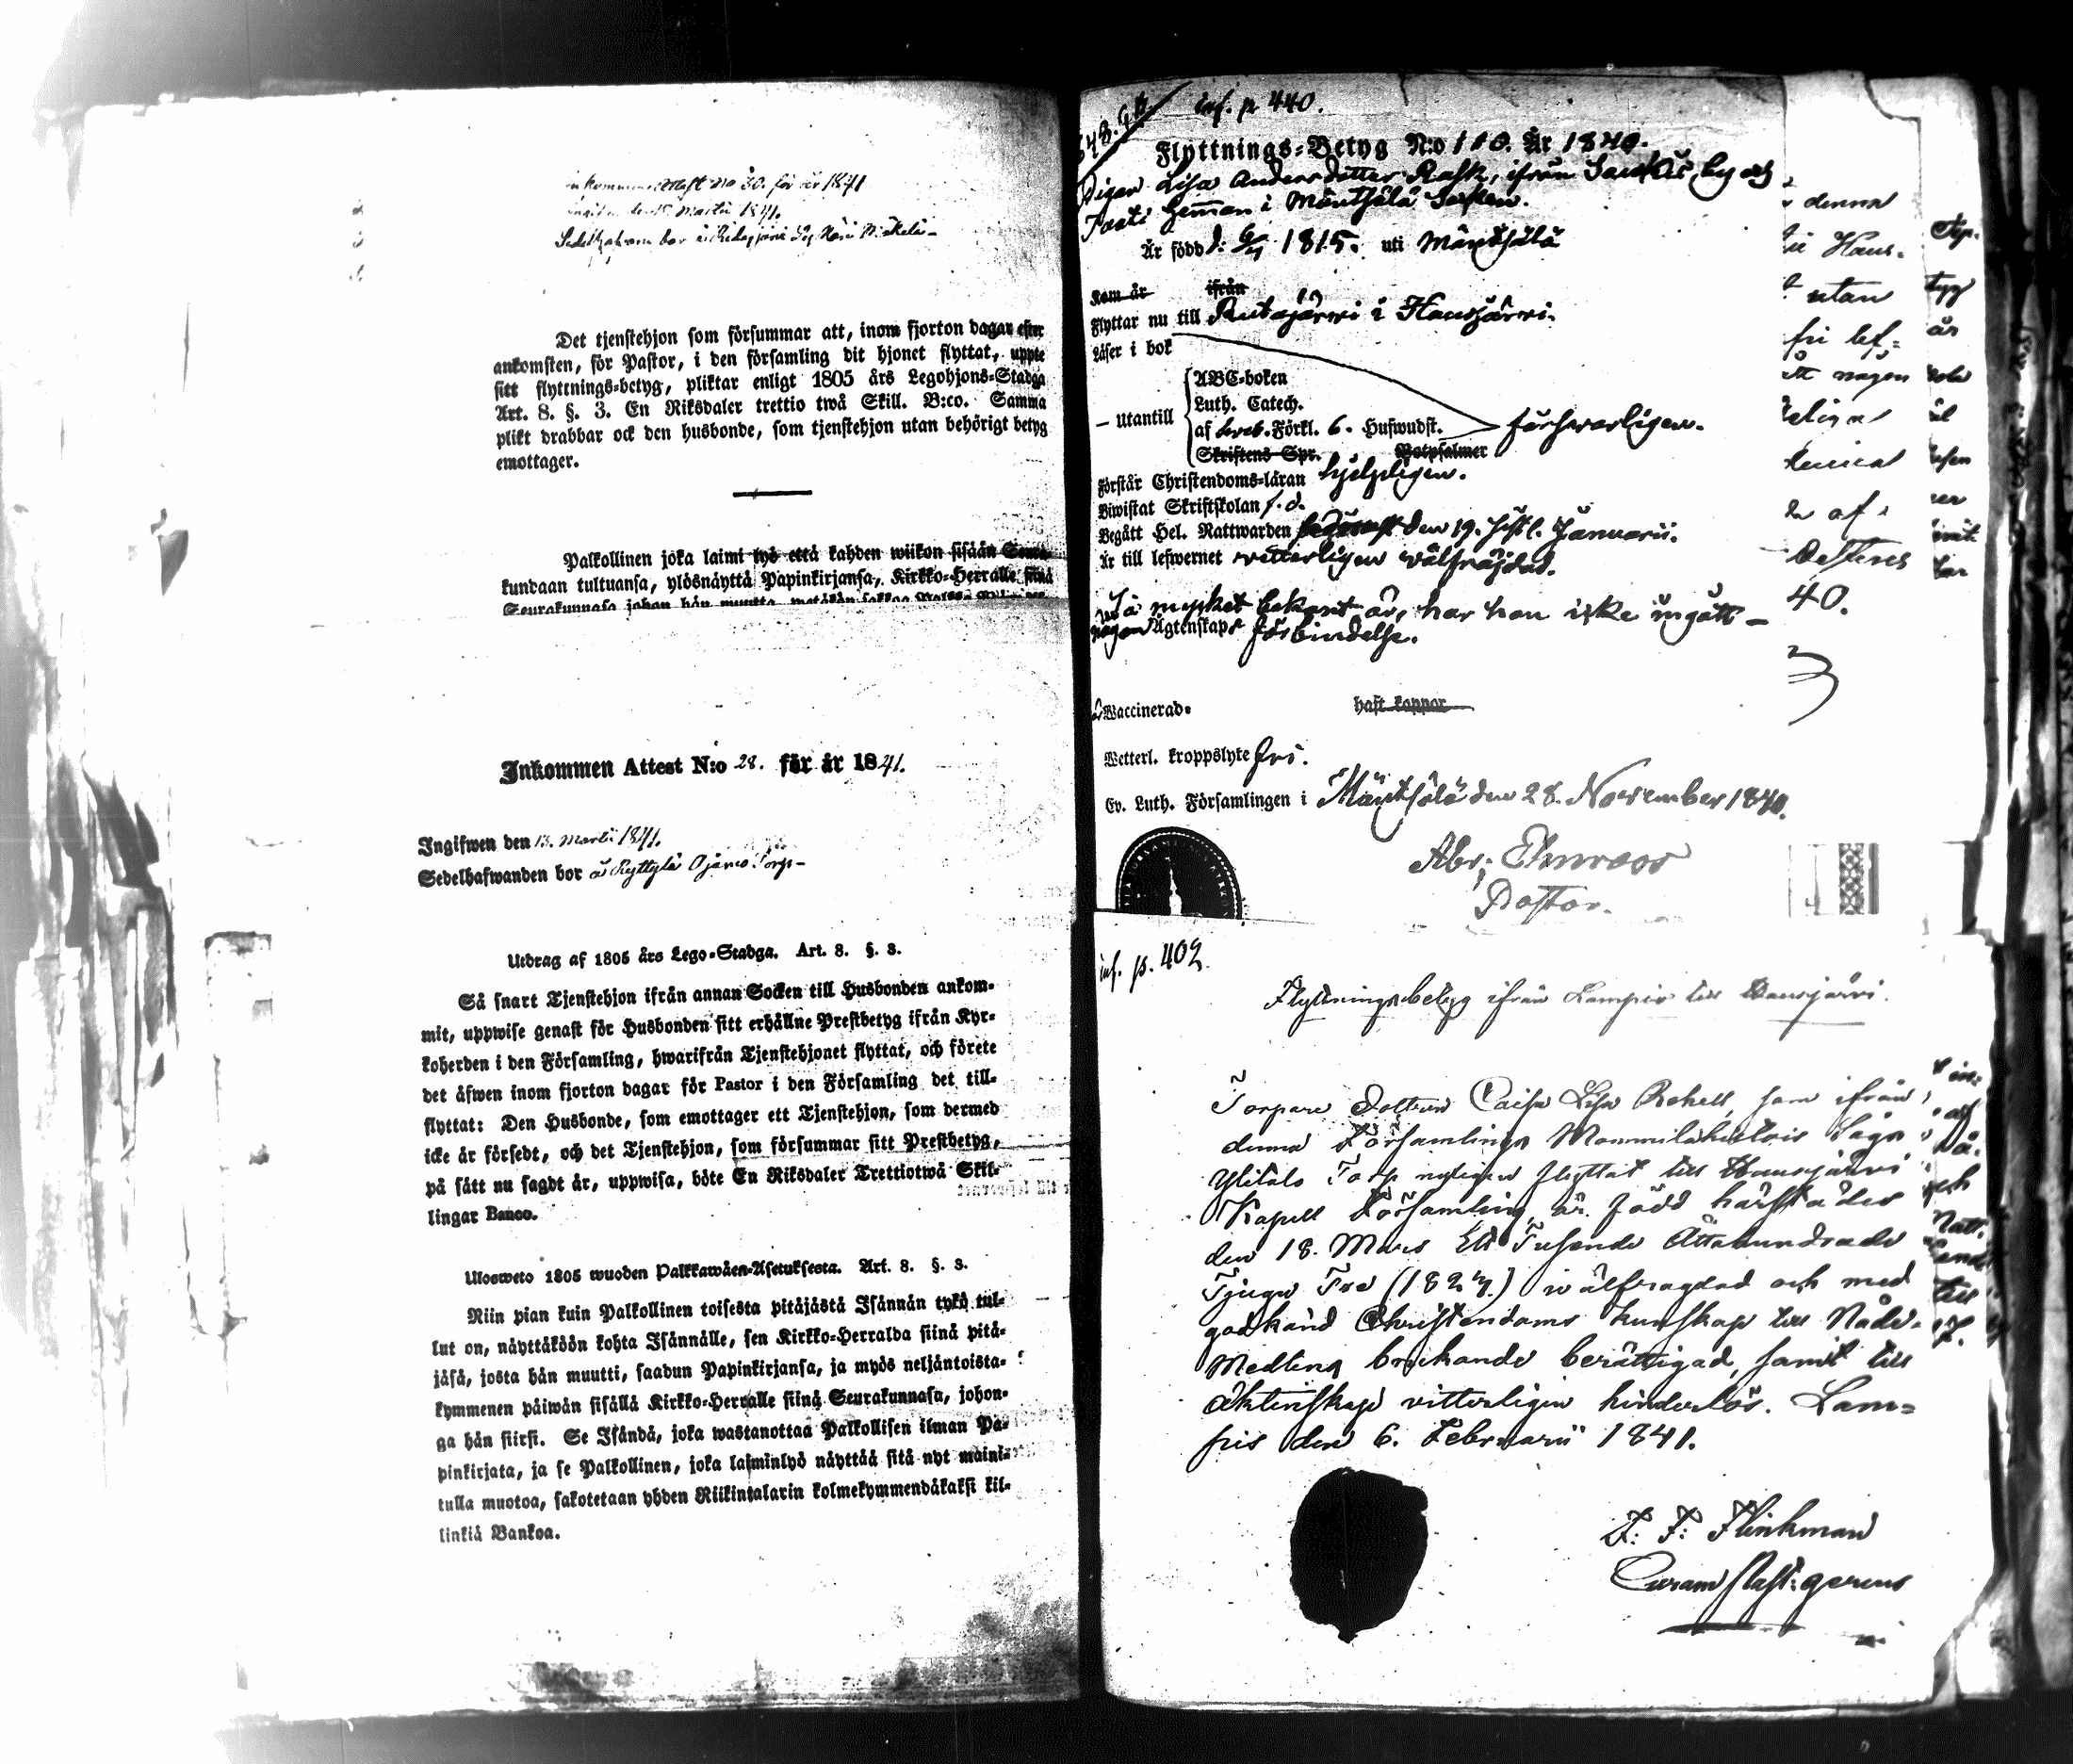 Inkommen Attest No 30. för år 1841
Ingifven den 15 Martii 1841.
Sedelhafvaren bor i
Det tjenstehjon som försummar att, inom fjorton dagar efter
ankomsten, för Pastor, i den församling dit hjonet flyttat, uppte
sitt flyttnings-betyg, pliktar enligt 1805 års Legohjons-Stadga
Art. 8. §. 3. En Riksdaler trettio twå Skill. B:co. Samma
plikt drabbar ock den husbonde, som tjenstehjon utan behörigt betyg
emottager.
Palkollinen joka laimi lyö että kahden wiikon sisään Seura-
kundaan tultuansa, ylösnäyttä Papinkirjansa, Kirkko-Herralle siinä
Seurakunnasa johon hän muutta
Inkommen Attest N:o 28. för år 1841.
Ingifwen den 13. Martii 1841.
Sedelhafwanden bor å Ryttylä Ojanes Torp-
Utdrag af 1805 års Lego-Stadga. Art. 8. §. 3.
Så snart Tjenstehjon ifrån annan Socken till Husbonden ankom-
mit, uppwise genast för Husbonden sitt erhållne Prestbetyg ifrån Kyr-
koherden i den Församling, hwarifrån Tjenstehjonet flyttat, och förete
det äfwen inom fjorton dagar för Pastor i den Församling det till-
flyttat: Den Husbonde, som emottager ett Tjenstehjon, som dermed
icke är försedt, och det Tjenstehjon, som försummar sitt Prestbetyg,
på sätt nu sagdt är, uppwisa, böte En Riksdaler Trettiotwå Skil-
lingar Banco.
Ulosweto 1805 wuoden Palkkawäen-Asetuksesta. Art. 8. §. 3.
Niin pian kuin Palkollinen toisesta pitäjästä Isännän tykö tul-
lut on, näyttäköön kohta Isännälle, sen Kirkko-Herralda siinä pitä-
jäsä, josta hän muutti, saadun Papinkirjansa, ja myös neljäntoista-
kymmenen päiwän sisällä Kirkko-Herralle siinä Seurakunnasa, johon-
ga hän siirsi. Se Isändä, joka wastanottaa Palkollisen ilman Pa-
pinkirjata, ja se Palkollinen, joka laiminlyö näyttää sitä nyt maini-
tulla muotoa, sakotetaan yhden Riikintalarin kolmekymmendäkaksi kil-
linkiä Bankoa.
inf. p 440.
Flyttnings-Betyg N:o 110. År 1840.
Pigan Lisa Andersdotter Rask, ifrån by och
Tosti Hemman i Mäntsälä Socken.
Är född d: 6/4 1815. uti Mäntsälä
Kom år ifrån
Flyttar nu till Rutajärvi i Hausjärvi.
Läser i bok
ABC-boken
Luth. Catech.
— Utantill af Förkl. 6. Hufwudst. försvarligen.
Skriftens Spr. Botpsalmer
Förstår Christendoms-läran hjelpligen.
Biwistat Skriftskolan f. d.
Begått Hel. Nattwarden den 19. sistl. Januarii.
Är till lefwernet vetterligen välfräjdad.
Så mycket bekant är, har hon icke ingått
någon Ägtenskaps förbindelse.
Waccinerad. haft koppor
Wetterl. kroppslyte fri.
Ev. Luth. Församlingen i Mäntsälä den 28. November 1840.
Abr: Thuroos
Pastor.
inf. p. 402
Flyttningsbetyg ifrån Lampis till Hausjärvi.
Torpare Dottren Caisa Lisa Rokell, som ifrån
denna Församlings Mommila Saga
Ylitalo Torp nyligen flyttat till Hausjärvi
Kapell Församling, är född härstädes
den 18. Mars Ett Tusende Åttahundrade
Tjugu Tre (1823.) wälfragdad och med
godkänd Christendoms kunskap till Nåde-
Medlens brukande berättigad, samt till
Äktenskap vitterligen hinderlös. Lam=
pis den 6. Februarii 1841.
F: F: Flinkman
denna
Haus-
utan
fri lef=
någon
af
40.